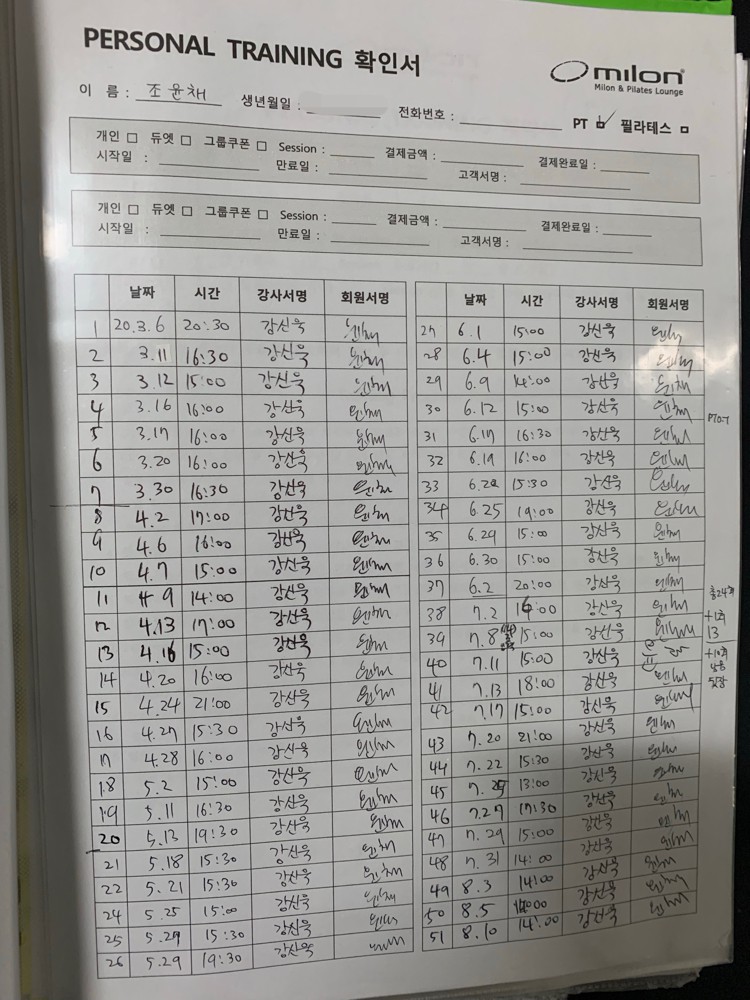 PERSONAL TRAINING 확인서
milon
Milon & Pilates Lounge
이 름 : 조윤채 생년월일 : 전화번호 : PT 필라테스
개인 듀엣 그룹쿠폰 Session : 결제금액 : 결제완료일 :
시작일 : 만료일 : 고객서명 :
개인 듀엣 그룹쿠폰 Session : 결제금액 : 결제완료일 :
시작일 : 만료일 : 고객서명 :
날짜 시간 강사서명 회원서명
1 20.3.6 20:30 강신욱
2 3.11 16:30 강신욱
3 3.12 15:00 강신욱
4 3.16 16:00 강신욱
5 3.17 16:00 강신욱
6 3.20 16:00 강신욱
7 3.30 16:30 강신욱
8 4.2 17:00 강신욱
9 4.6 16:00 강신욱
10 4.7 15:00 강신욱
11 4 9 14:00 강신욱
12 4.13 17:00 강신욱
13 4.16 15:00 강신욱
14 4.20 16:00 강신욱
15 4.24 21:00 강신욱
16 4.27 15:30 강신욱
17 4.28 16:00 강신욱
18 5.2 15:00 강신욱
19 5.11 16:30 강신욱
20 5.13 19:30 강신욱
21 5.18 15:30 강신욱
22 5.21 15:30 강신욱
24 5.25 15:00 강신욱
25 5.29 15:30 강신욱
26 5.29 19:30 강신욱
날짜 시간 강사서명 회원서명
27 6.1 15:00 강신욱
28 6.4 15:00 강신욱
29 6.9 14:00 강신욱
30 6.12 15:00 강신욱
31 6.17 16:30 강신욱
32 6.19 16:00 강신욱
33 6.22 15:30 강신욱
34 6.25 19:00 강신욱
35 6.29 15:00 강신욱
36 6.30 15:00 강신욱
37 6.2 20:00 강신욱
38 7.2 16:00 강신욱
39 7.8 15:00 강신욱
40 7.11 15:00 강신욱
41 7.13 18:00 강신욱
42 7.17 15:00 강신욱
43 7.20 21:00 강신욱
44 7.22 15:30 강신욱
45 7.25 13:00 강신욱
46 7.27 17:30 강신욱
47 7.29 15:00 강신욱
48 7.31 14:00 강신욱
49 8.3 14:00 강신욱
50 8.5 강신욱
51 8.10 14:00 강신욱
총24회
+1회
13
+10회